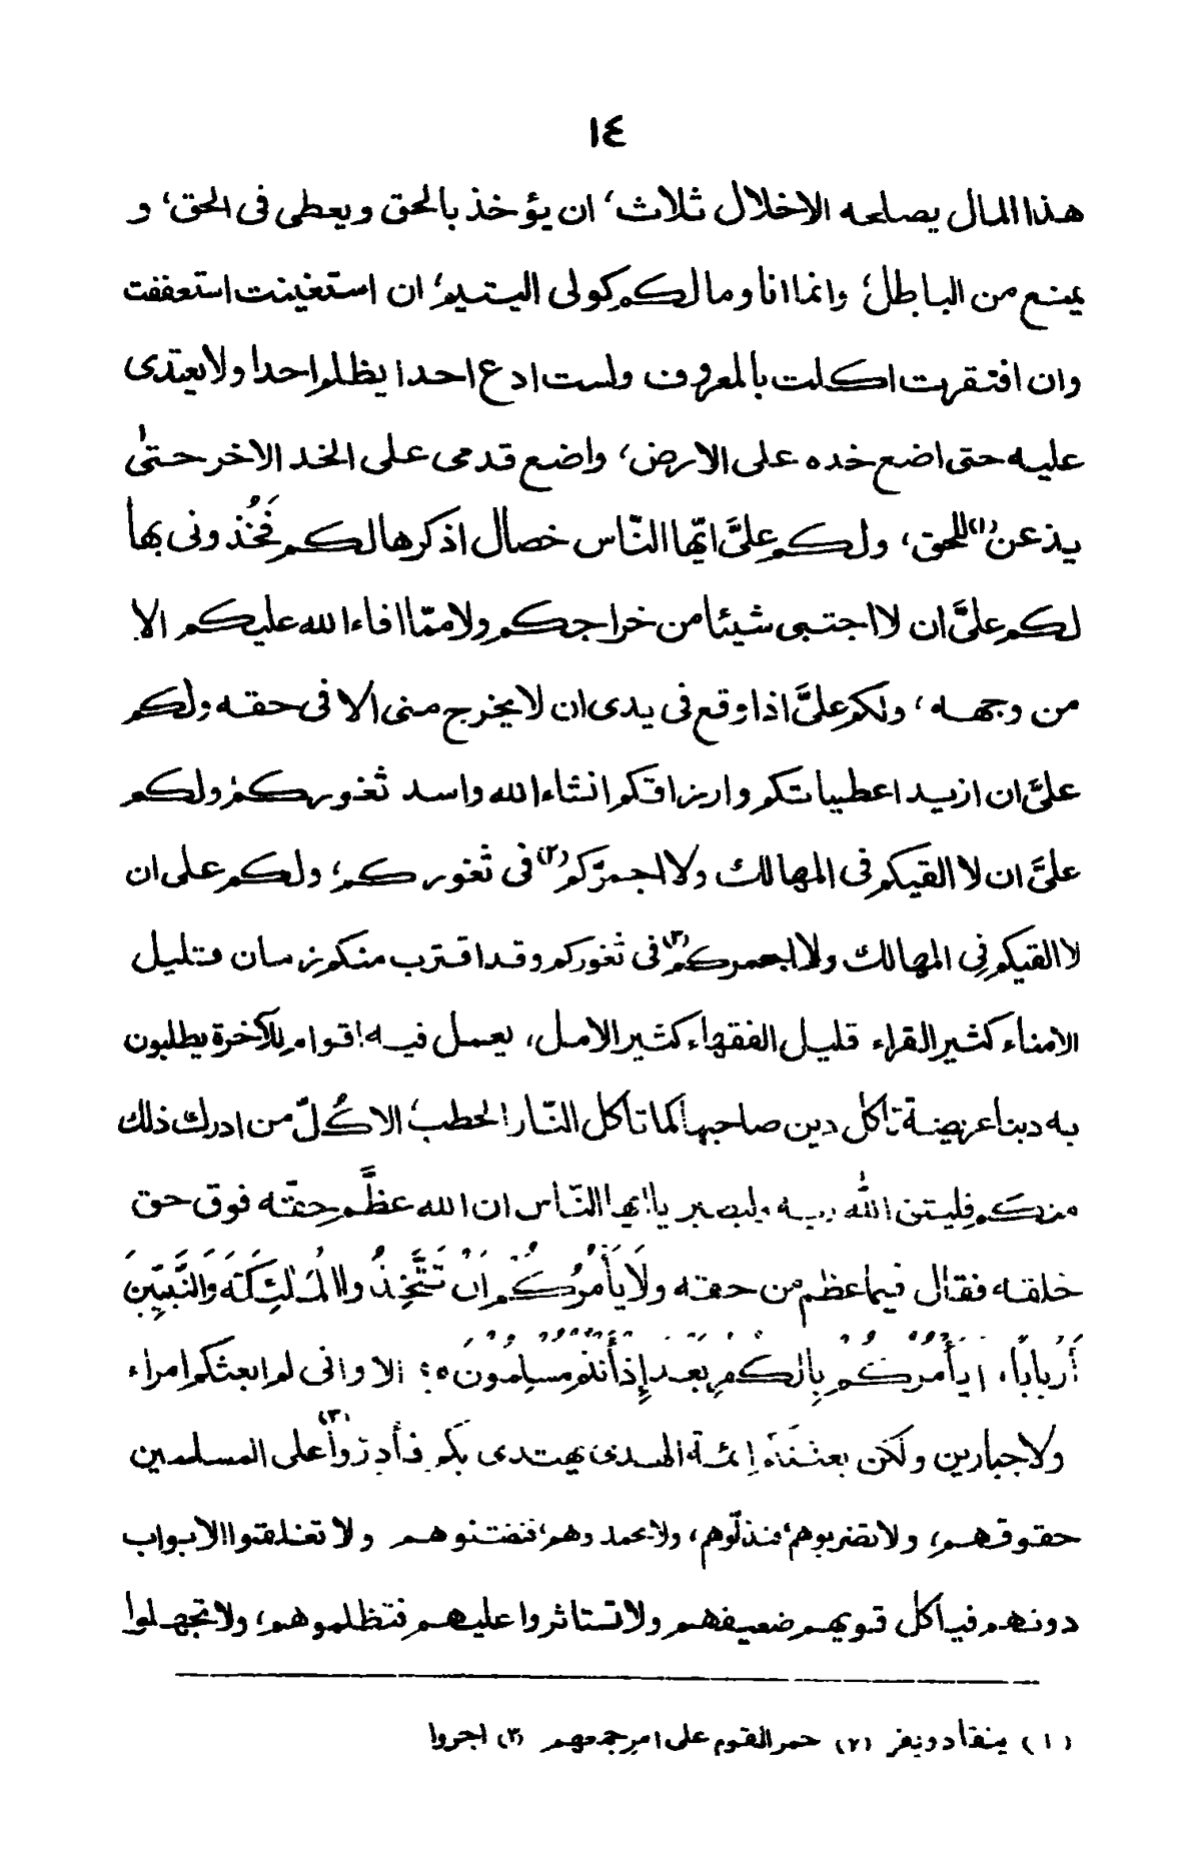 ١٤
هذا المال يصلحه الاخلال ثلاث، ان يؤخذ بالحق ويعطى فى الحق، و
يمنع من الباطل؛ وانما انا ومالكم كولى اليتيم؛ ان استغنيت استعففت
وان افتقرت اكلت بالمعروف ولست ادع احدا يظلم احدا ولا يعتدى
عليه حتى اضع خده على الارض، واضع قدمى على الخد الاخر حتىٰ
يذعن(١) للحق، ولكم علىَّ ايّها النّاس خصال اذكرها لكم فَخُذونى بها
لكم علىَّ ان لا اجتبى شيئا من خراجكم ولا ممّا افاء الله عليكم الا
من وجهه، ولكم علىَّ اذا وقع فى يدى ان لا يخرج منى الا فى حقه ولكم
علىَّ ان ازيد اعطياتكم وارزاقكم انشاء الله واسد ثغوركم ولكم
علىَّ ان لا القيكم فى المهالك ولا اجمرّكم(٢) فى ثغوركم؛ ولكم على ان
لا القيكم فِى المهالك ولا اجمركم(٣) فى ثغوركم وقد اقترب منكم زمان قليل
الامناء كثير القراء قليل الفقهاء كثير الامل، يعمل فيه اقوام للآخرة يطلبون
به دينا عريضة تاكل دين صاحبها كما تاكل النّار الحطب؛ الا كُلّ من ادرك ذلك
منكم فليتق الله ربه وليصبر يا ايها النّاس ان الله عظَّم حقّه فوق حق
خلقه فقال فيما عظم من حقه ولَا يَأْمُرُكُمْ اَنْ تَتَّخِذُوا الْمَلٰئِكَةَ وَالنَّبِيّيْنَ
أَرْبَابًا، ايَأْمُرُكُمْ بِالْكُفْرِ بَعْدَ إِذْ أَنْتُمْ مُسْلِمُوْنَ ه؛ الا وانى لم ابعثكم امراء
ولا جبارين ولكن بعثتكم ائمة الهدى يهتدى بكم فأدِرّوا(٣) على المسلمين
حقوقهم؛ ولا تضربوهم؛ فتذلّوهم، ولا تحمدوهم؛ فتفتنوهم ولا تغلقوا الابواب
دونهم فياكل قويهم ضعيفهم ولا تستاثروا عليهم فتظلموهم؛ ولا تجهلوا
(١) ينقاد ويقر (٢) جمر القوم على امر جمعهم (٣) اجروا